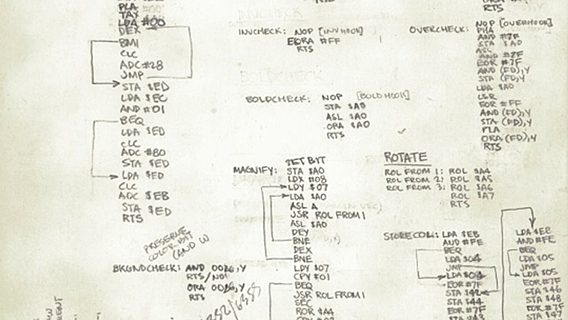 PLA
TAX
LDA #00
DEX
BMI
CLC
ADC #28
JMP
STA $ED
LDA $EC
AND #01
BEQ
LDA $ED
CLC
ADC #80
STA $ED
LDA $ED
CLC
ADC $EB
STA $ED
RTS
PRESERVE
COLOR BIT
(AND W
BKGNDCHECK: AND
RTS/NOP
ORA
RTS
INVCHECK: NOP [INVHOOK]
EORA #FF
RTS
BOLDCHECK
BOLDCHECK: NOP [BOLDHOOK]
STA $A0
ASL $A0
ORA $A0
RTS
MAGNIFY:
STA $A0
LDX #08
LDY $07
LDA $A0
ASL A
JSR ROL FROM 1
ASL $A0
DEY
BNE
DEX
BNE
LDY $07
CPY #01
BEQ
JSR ROL FROM 1
SEC
ROR $A4
OVERCHECK: NOP [OVERHOOK]
PHA
AND #7F
STA $A0
ASL
AND #7F
EOR #7F
AND (FD),Y
STA (FD),Y
LDA $A0
LSR
EOR #FF
AND (FD),Y
STA (FD),Y
PLA
ORA (FD),Y
RTS
ROTATE
ROL FROM 1: ROL $A4
ROL FROM 2: ROL $A5
ROL FROM 3: ROL $A6
ROL $A7
RTS
STORECOL: LDA $EB
AND #FE
BEQ
LDA $04
JMP
LDA $04
EOR #7F
STA
STA $44
EOR #7F
STA
LDA $EB
AND #FE
BEQ
LDA $05
JMP
LDA $05
EOR #7F
STA $46
STA $48
EOR #7F
STA $47